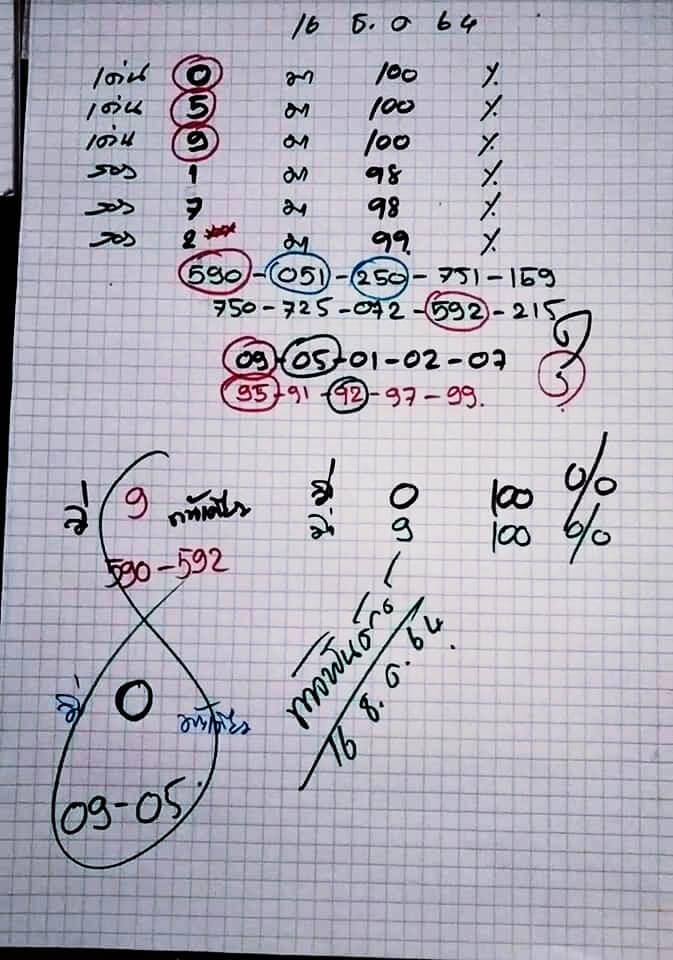 16 ธ. ค 64
เด่น 0 มา 100 %
เด่น 5 มา 100 %
เด่น 9 มา 100 %
รอง 1 มา 98 %
รอง 7 มา 98 %
รอง 2 มา 99 %
590 - 051 - 250 - 751 - 159
750 - 725 - 072 - 592 - 215
09 - 05 - 01 - 02 - 07
95 - 91 - 92 - 97 - 99.
วิ่ 9
590 - 592
วิ่ 0 100 %
วิ่ 9 100 %
วิ่ 0
09 - 05
16 ธ. ค. 64.